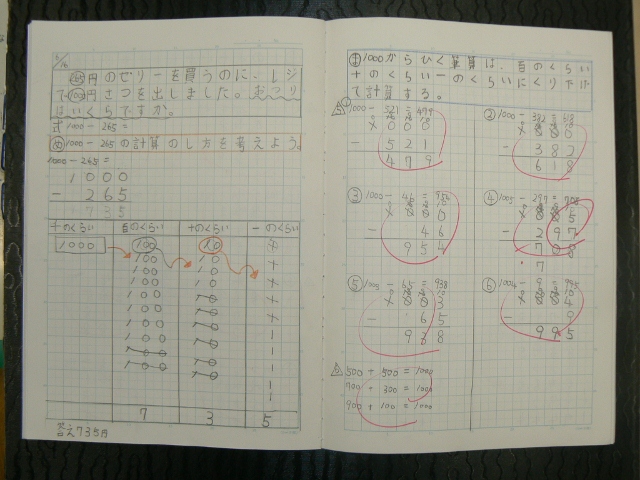 265円のゼリーを買うのに、レジ
で1000円さつを出しました。おつり
はいくらですか。
式1000-265=
め 1000-265の計算のし方を考えよう。
1000-265=
1000
- 265
735
千のくらい 百のくらい 十のくらい 一のくらい
1000 100 10
100 10
100 10
100 10
100 10
100 10
100 10
100 10
100 10
100
7 3 5
答え735円
ま 1000からひく筆算は、百のくらい
十のくらい一のくらいにくり下げ
て計算する。
① 1000-521=479
1000
- 521
479
② 1000-382=618
1000
- 382
618
③ 1000-46=954
1000
- 46
954
④ 1005-297=708
1005
- 297
708
7
⑤ 1003-65=938
1003
- 65
938
⑥ 1004-9=995
1004
- 9
995
500+500=1000
700+300=1000
900+100=1000